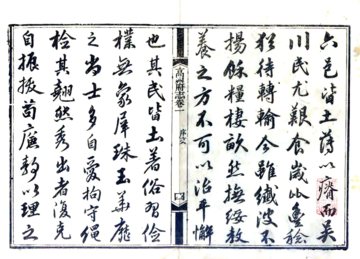 六邑皆土薄以瘠而吳
川民尤艱食歲比豐稔
猶待轉輸今雖纖波不
揚餱糧棲畝然撫綏教
養之方不可以治平懈
高州府志卷一 序
也其民皆土著俗習儉
樸無象犀珠玉華靡
之尚士多自愛拘守繩
檢其翹然秀出者復克
自振拔苟廣以理之